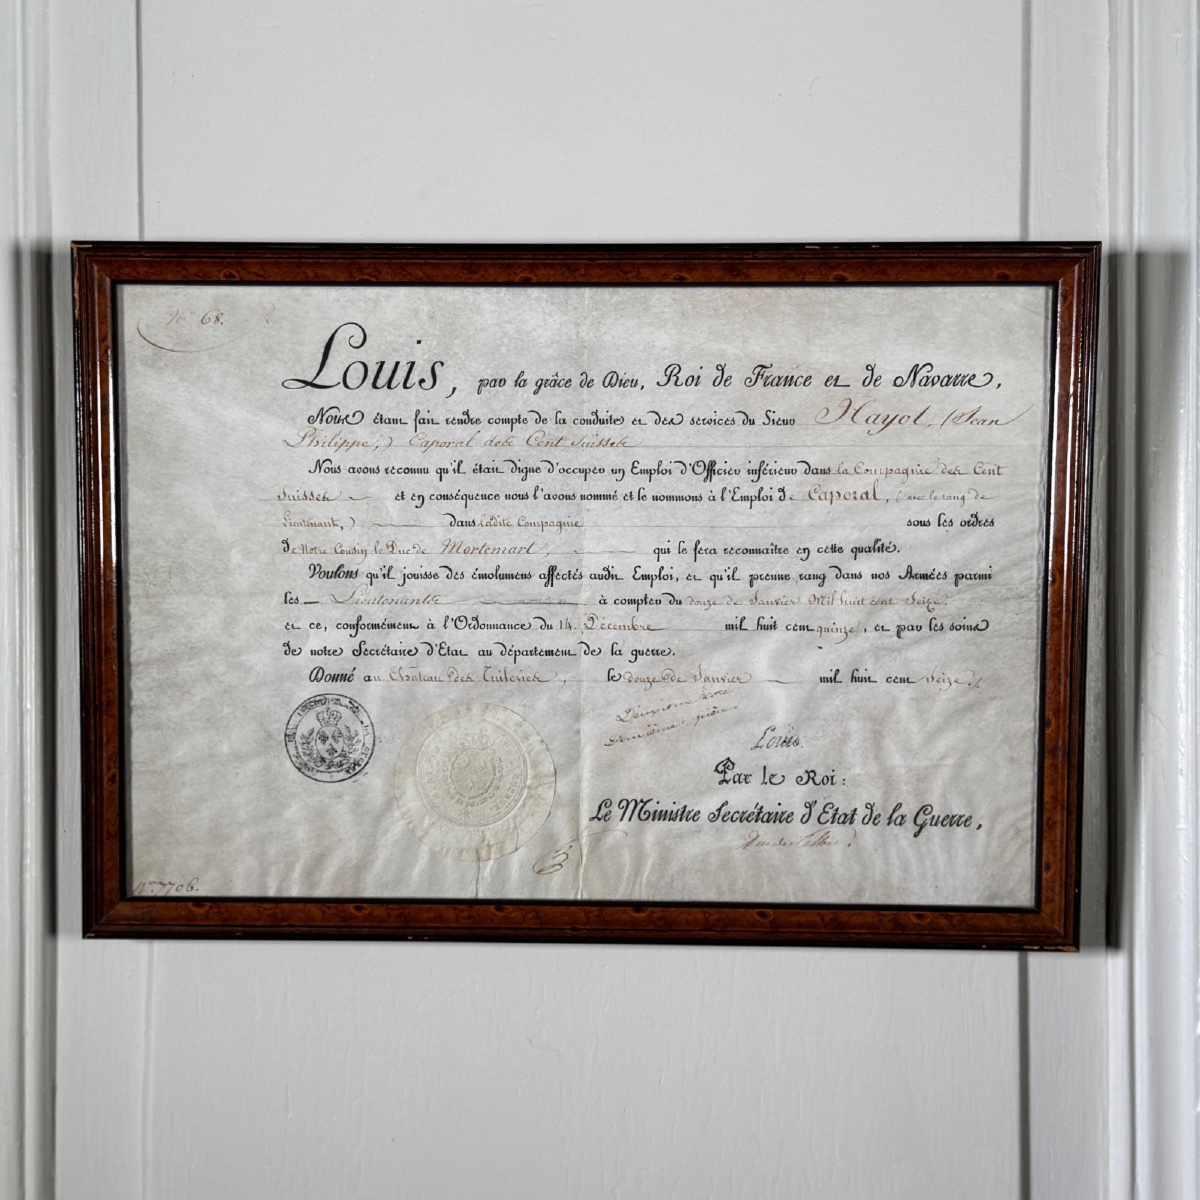 No 68.
Louis, par la grâce de Dieu, Roi de France et de Navarre,
Nous étant fait rendre compte de la conduite et des services du Sieur Hayol, (Jean
Philippe,) Caporal des Cent Suisses
Nous avons reconnu qu'il était digne d'occuper un Emploi d'Officier inférieur dans la Compagnie des Cent
Suisses et en conséquence nous l'avons nommé et le nommons à l'Emploi de Caporal, (avec le rang de
Lieutenant,) dans ladite Compagnie sous les ordres
de Notre Cousin le Duc de Mortemart, qui le fera reconnaître en cette qualité.
Voulons qu'il jouisse des émolumens affectés audit Emploi, et qu'il prenne rang dans nos Armées parmi
les Lieutenants à compter du douze de Janvier Mil huit cent Seize.
et ce, conformément à l'Ordonnance du 14. Décembre mil huit cent quinze, et par les soins
de notre Secrétaire d'Etat au département de la guerre.
Donné au Château des Tuileries, le douze de Janvier mil huit cent Seize./.
Louis.
Par le Roi:
Le Ministre Secrétaire d'Etat de la Guerre,
No. 7706.